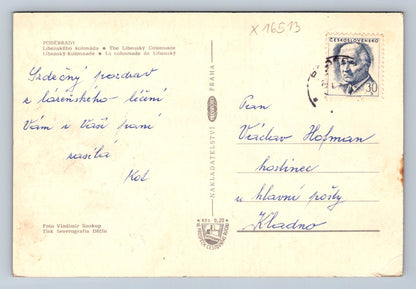 x 16513
PODĚBRADY
Libenského kolonáda • The Libenský Colonnade
Libenský-Kolonnade • La colonnade de Libenský
ČESKOSLOVENSKO
30
h
Srdečný pozdrav
z lázeňského léčení
Vám i Vaší paní
zasílá
Kot
NAKLADATELSTVÍ
ORBIS
PRAHA
Pan
Václav Hofman
hostinec
u hlavní pošty
Kladno
Foto Vladimír Soukup
Tisk Severografia Děčín
Kčs 0,20